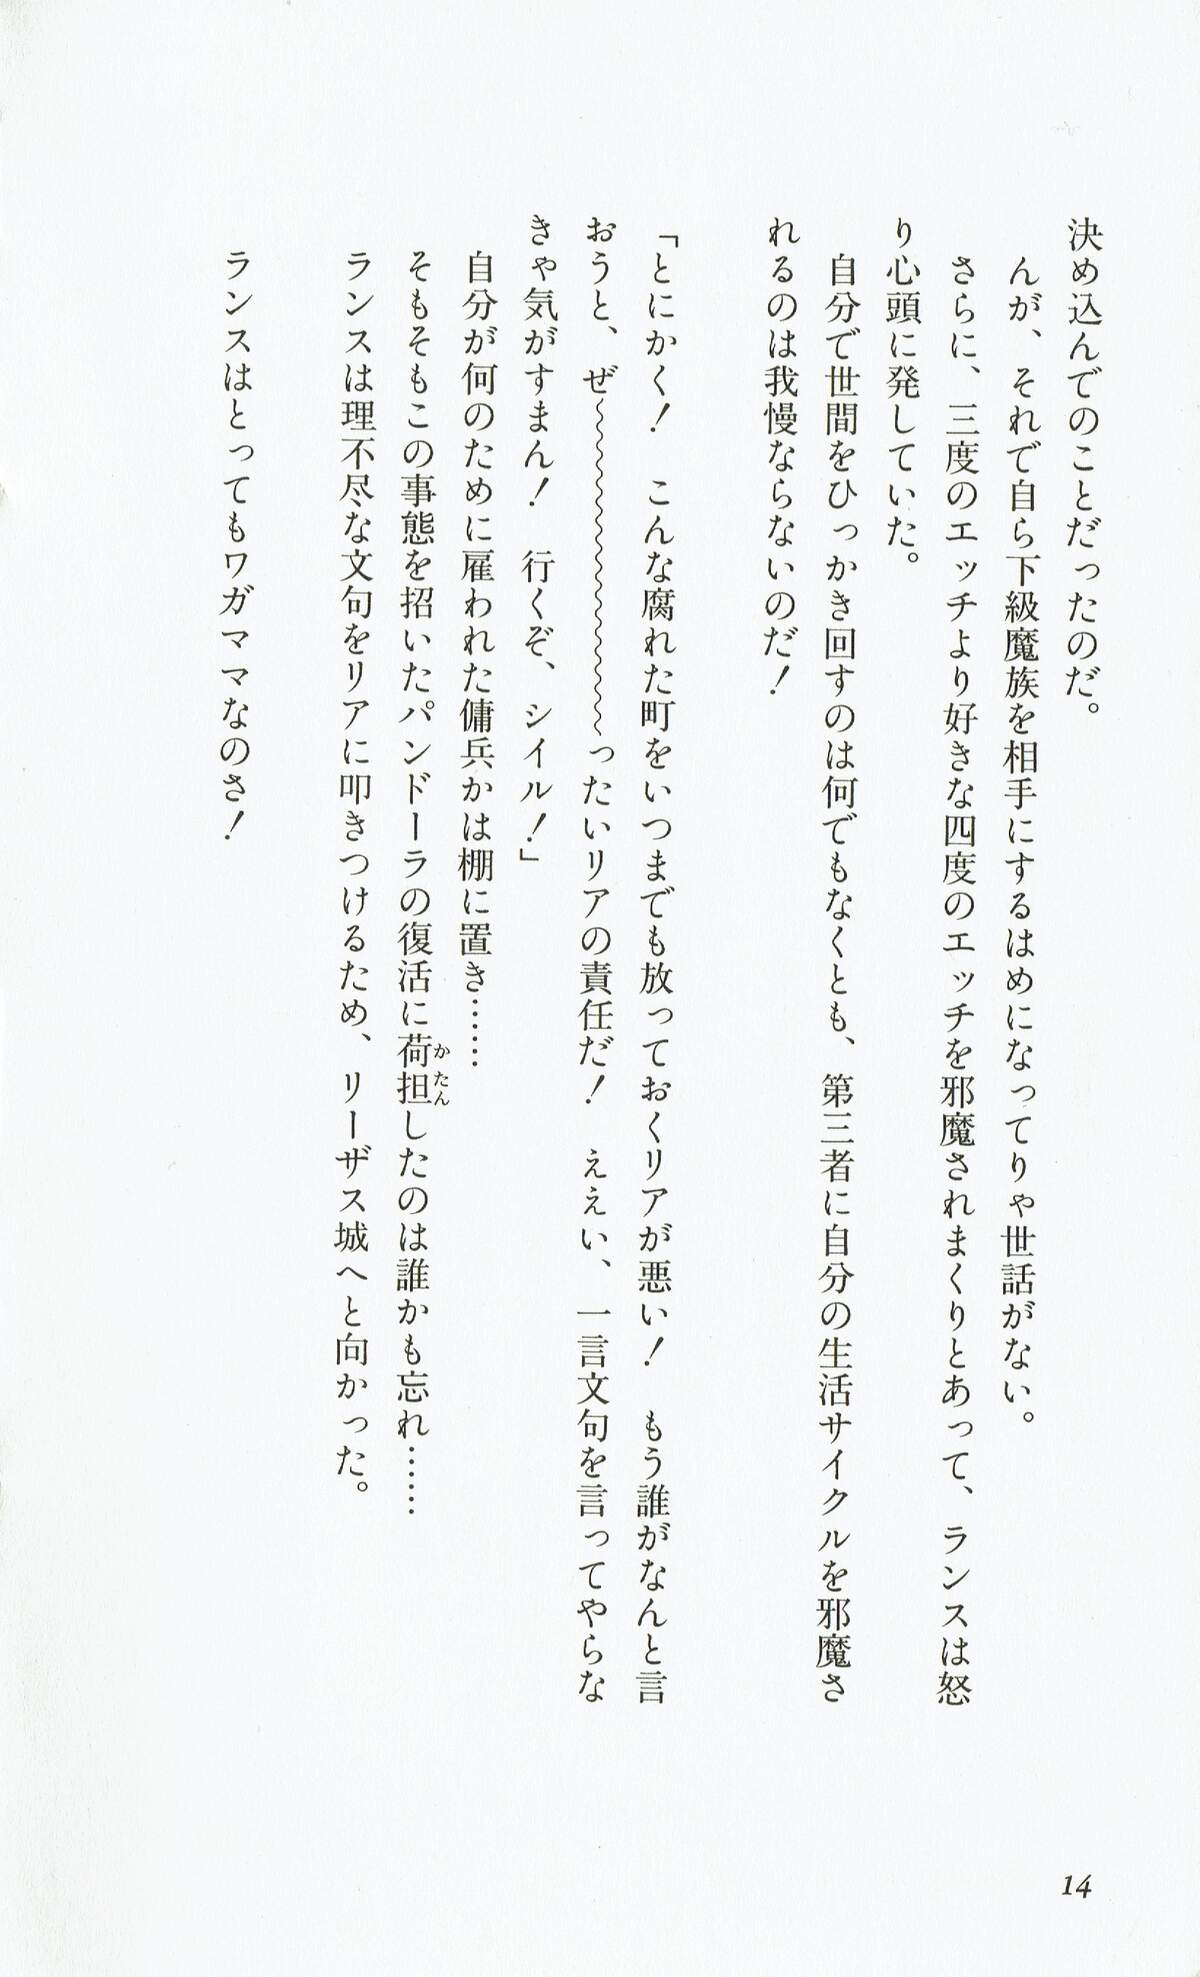 決め込んでのことだったのだ。
んが、それで自ら下級魔族を相手にするはめになってりゃ世話がない。
さらに、三度のエッチより好きな四度のエッチを邪魔されまくりとあって、ランスは怒
り心頭に発していた。
自分で世間をひっかき回すのは何でもなくとも、第三者に自分の生活サイクルを邪魔さ
れるのは我慢ならないのだ！
「とにかく！　こんな腐れた町をいつまでも放っておくリアが悪い！　もう誰がなんと言
おうと、ぜ〜〜〜〜〜〜〜〜〜ったいリアの責任だ！　ええい、一言文句を言ってやらな
きゃ気がすまん！　行くぞ、シイル！」
自分が何のために雇われた傭兵かは棚に置き……
そもそもこの事態を招いたパンドーラの復活に荷担したのは誰かも忘れ……
かたん
ランスは理不尽な文句をリアに叩きつけるため、リーザス城へと向かった。
ランスはとってもワガママなのさ！
14